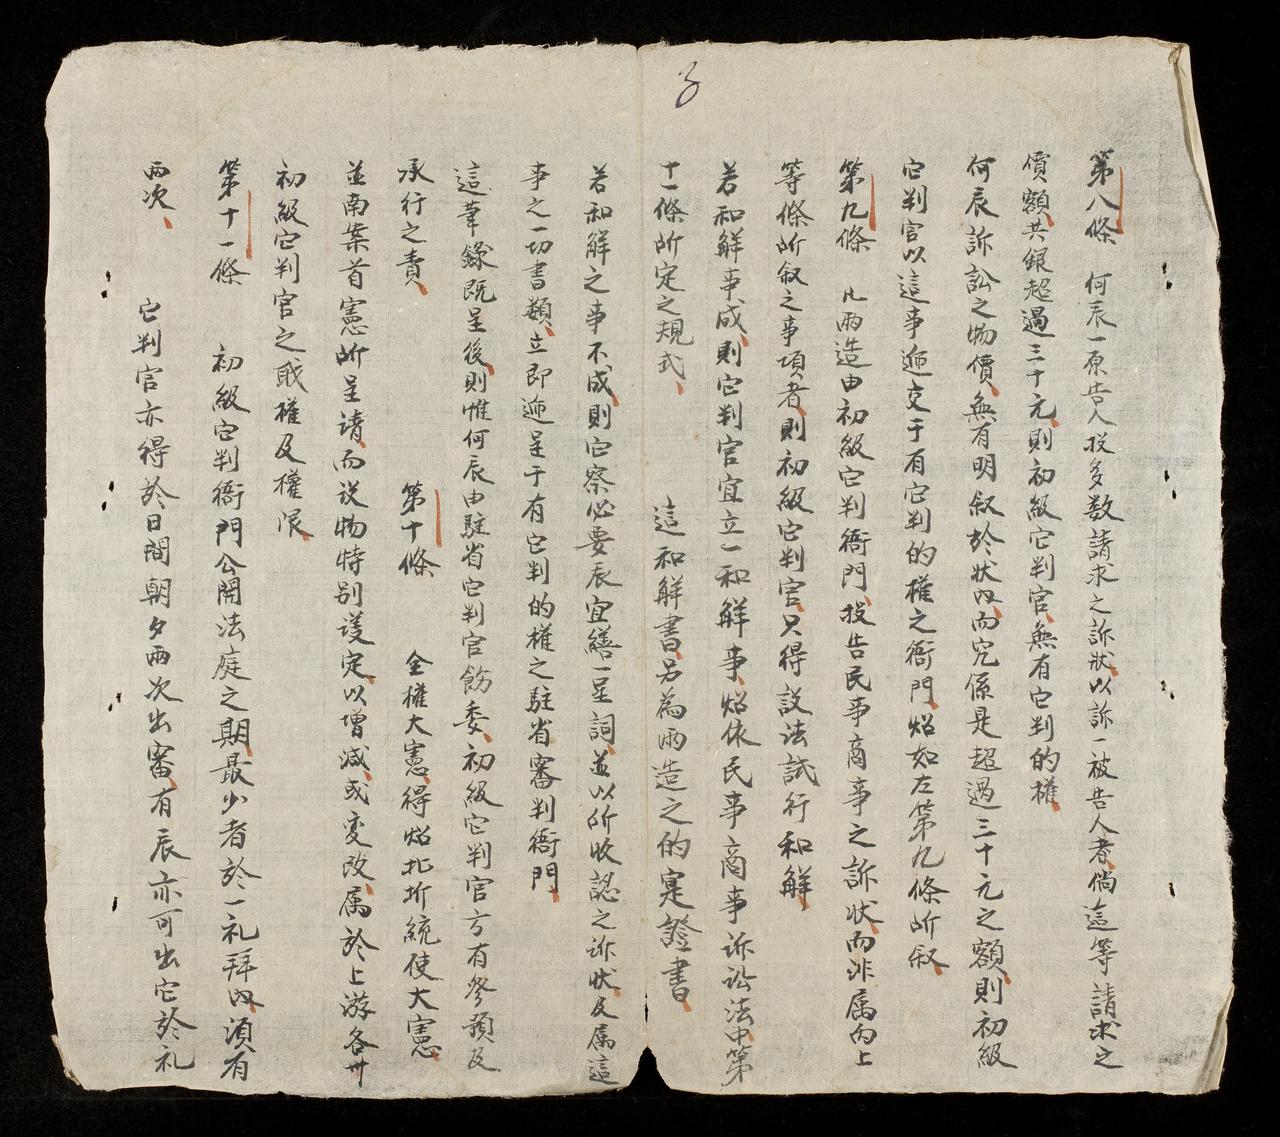 第八條　何辰一原告人投多数請求之訴狀、以訴一被告人者、倘這等請求之
價額、共銀超過三十元、則初級它判官、無有它判的權、
何辰訴訟之物價、無有明叙於狀内、而究係是超過三十元之額、則初級
它判官以這事遞交于有它判的權之衙門、炤如左第九條所叙、
第九條　凡兩造由初級它判衙門、投告民事商事之訴狀、而非属内上
等條所叙之事項者、則初級它判官、只得設法試行和解、
若和解事成、則它判官宜立一和解事、炤依民事商事诉讼法中、第
十一條所定之規式、　這和解書、另為兩造之的寔證書、
若和解之事不成、則它察必要辰宜繕一呈詞、並以所收認之诉狀、及属這
事之一切書類、立即遞呈于有它判的權之駐省審判衙門、
這葷錄既呈後、則惟何辰由駐省它判官飭委、初級它判官方有參預及
承行之責、　第十條　全權大憲、得炤北圻統使大憲、
並南案首憲所呈請、而说物特别護定、以增减、或变改、属於上游各卅
初級它判官之戝權及權限、
第十一條　初級它判衙門公開法庭之期、最少者於一礼拜内、須有
兩次、　它判官亦得於日間朝夕兩次出審、有辰亦可出它於礼